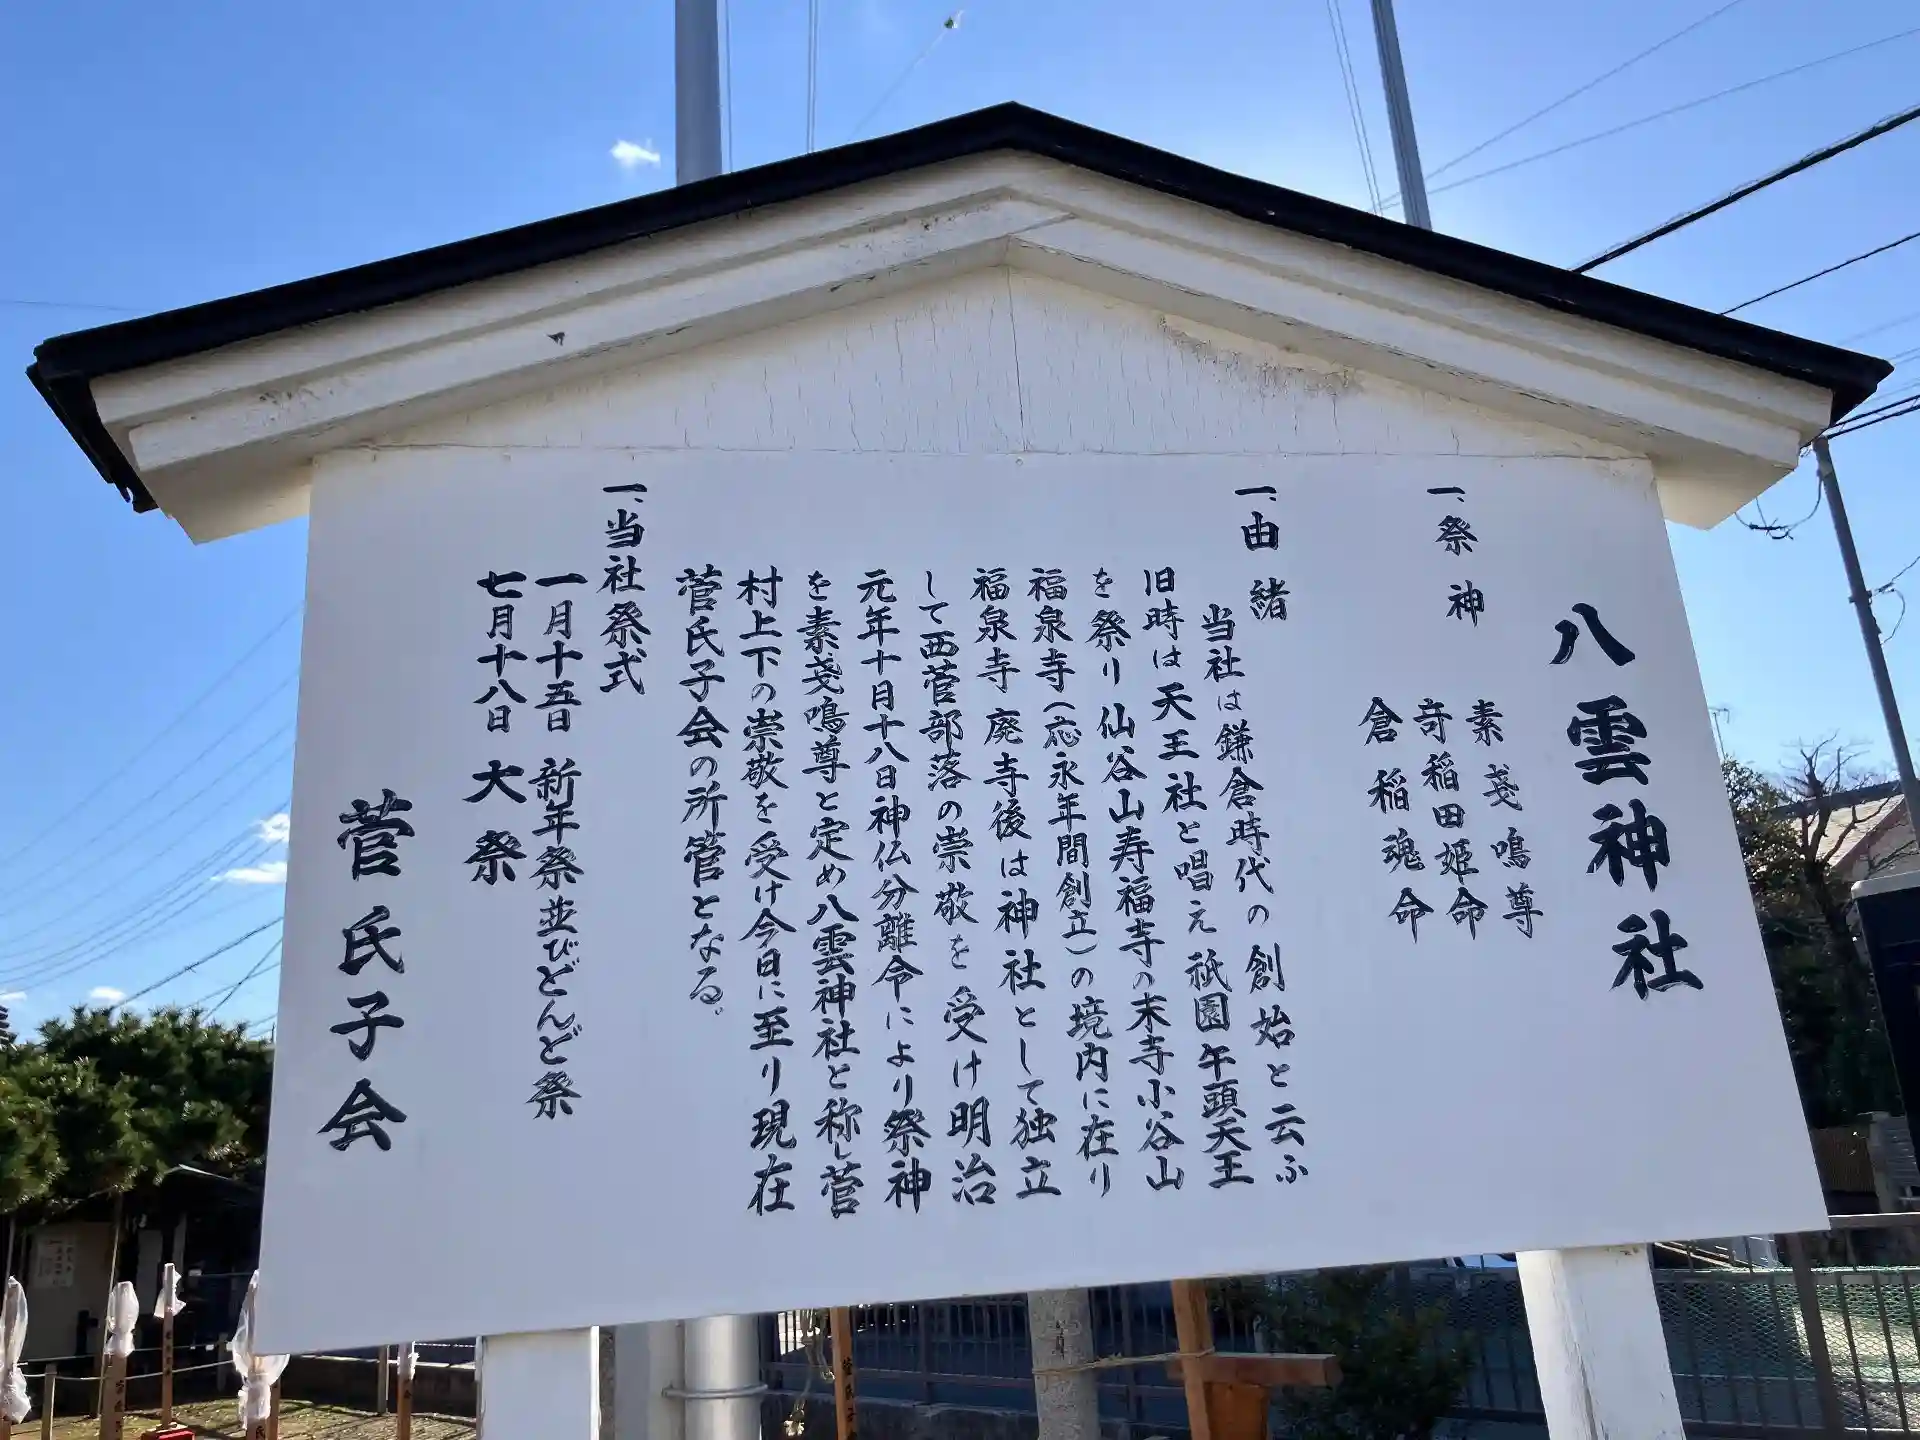 八雲神社
一、祭神
素戔鳴尊
奇稲田姫命
倉稲魂命
一、由緒
当社は鎌倉時代の創始と云ふ
旧時は天王社と唱え祇園午頭天王
を祭り仙谷山寿福寺の末寺小谷山
福泉寺(応永年間創立)の境内に在り
福泉寺廃寺後は神社として独立
して西菅部落の崇敬を受け明治
元年十月十八日神仏分離令により祭神
を素戔鳴尊と定め八雲神社と称し菅
村上下の崇敬を受け今日に至り現在
菅氏子会の所管となる。
一、当社祭式
一月十五日 新年祭並びどんど祭
七月十八日 大祭
菅氏子会